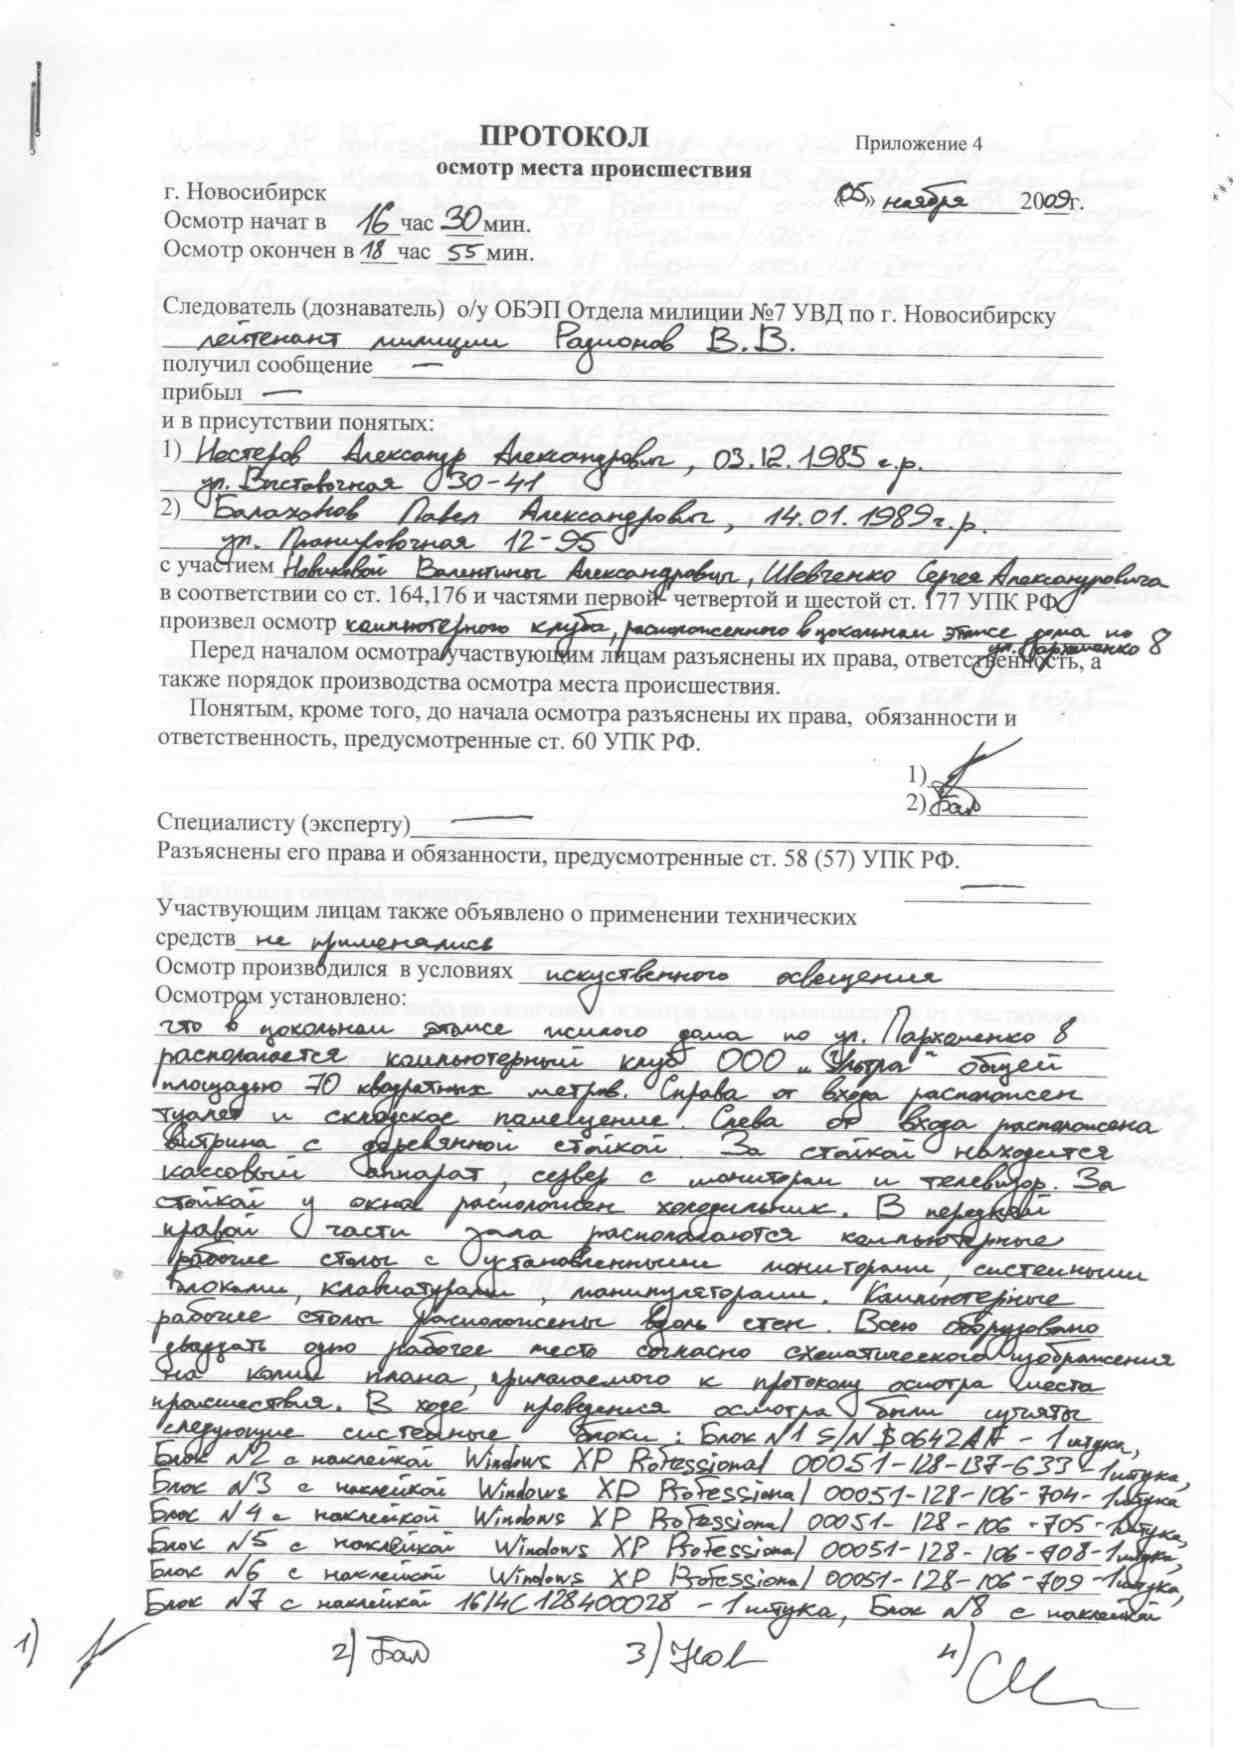 ПРОТОКОЛ
Приложение 4
осмотр места происшествия
г. Новосибирск
«05» ноября 2009г.
Осмотр начат в 16 час 30 мин.
Осмотр окончен в 18 час 55 мин.
Следователь (дознаватель) о/у ОБЭП Отдела милиции №7 УВД по г. Новосибирску
лейтенант милиции Радионов В.В.
получил сообщение —
прибыл —
и в присутствии понятых:
1) Нестеров Александр Александрович, 03.12.1985 г.р.
ул. Выставочная 30-41
2) Балахонов Павел Александрович, 14.01.1989 г.р.
ул. Планировочная 12-95
с участием Новиковой Валентины Александровны, Шевченко Сергея Александровича
в соответствии со ст. 164,176 и частями первой- четвертой и шестой ст. 177 УПК РФ
произвел осмотр компьютерного клуба, расположенного в цокольном этаже дома по
ул. Пархоменко 8
Перед началом осмотра участвующим лицам разъяснены их права, ответственность, а
также порядок производства осмотра места происшествия.
Понятым, кроме того, до начала осмотра разъяснены их права, обязанности и
ответственность, предусмотренные ст. 60 УПК РФ.
1)
2) Бал
Специалисту (эксперту) —
Разъяснены его права и обязанности, предусмотренные ст. 58 (57) УПК РФ.
—
Участвующим лицам также объявлено о применении технических
средств не применялись
Осмотр производился в условиях искуственного освещения
Осмотром установлено:
что в цокольном этаже жилого дома по ул. Пархоменко 8
располагается компьютерный клуб ООО „Ультра" общей
площадью 70 квадратных метров. Справа от входа расположен
туалет и складское помещение. Слева от входа расположена
витрина с деревянной стойкой. За стойкой находится
кассовый аппарат, сервер с монитором и телевизор. За
стойкой у окна расположен холодильник. В передней
правой части зала располагаются компьютерные
рабочие столы с установленными мониторами, системными
блоками, клавиатурами, манипуляторами. Компьютерные
рабочие столы расположены вдоль стен. Всего оборудовано
двадцать одно рабочее место согласно схематического изображения
на копии плана, прилагаемого к протоколу осмотра места
происшествия. В ходе проведения осмотра были изъяты
следующие системные блоки: Блок №1 S/N \$0642AA - 1 штука,
Блок №2 с наклейкой Windows XP Professional 00051-128-137-633-1штука,
Блок №3 с наклейкой Windows XP Professional 00051-128-106-704-1штука
Блок №4 с наклейкой Windows XP Professional 00051-128-106-705-1штука,
Блок №5 с наклейкой Windows XP Professional 00051-128-106-708-1штука,
Блок №6 с наклейкой Windows XP Professional 00051-128-106-709-1штука,
Блок №7 с наклейкой 1614C128400028 - 1 штука, Блок №8 с наклейкой
1)
2) Бал
3) Нов
4)